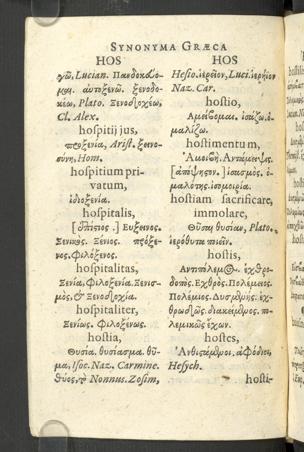 SYNONYMA GRÆCA
HOS
γῶ, Lucian. Πανδοκεύομαι
αὐτοξενῶ. ξενοδο-
κέω, Plato. Ξενοδοχέω,
Cl. Alex.
hospitij jus,
προξενία, Arist. ξεινο-
σύνη, Hom.
hospitium pri-
vatum,
ἰδιοξενία.
hospitalis,
Εὔξεινος.
Ξενικὸς. Ξένιος. πρόξε-
νος. Φιλόξενος.
hospitalitas,
Ξενία, Φιλοξενία. Ξενισ-
μὸς, & Ξενοδοχία.
hospitaliter,
Ξενίως. Φιλοξένως.
hostia,
Θυσία. θυσίασμα. θῦ-
μα, Isoc. Naz. Carmine.
θύος, τὸ Nonnus. Zosim,
HOS
Hesio. ἱερεῖον, Luci. ἱερήϊον
Naz. Car.
hostio,
Ἀμείβομαι. ἰσάζω. ὁ-
μαλίζω.
hostimentum,
Ἀμοιβή. Ἀντάμειψις.
ἰσασμὸς. ὁ-
μαλότης. ἰσομοιρία.
hostiam sacrificare,
immolare,
Θῦσαι θυσίαν, Plato.
ἱερόθυτα ποιεῖν.
hostis,
Ἀντιπόλεμος. ἐχθρο-
δοπὸς. Ἐχθρὸς. Πολέμειος.
Πολέμιος. Δυσμενὴς. ἐχ-
θρωδῶς. διακείμενος. πο-
λεμικῶς ἔχων.
hostes,
Ἀνθιστάμενοι.
Hesych.
hosti-